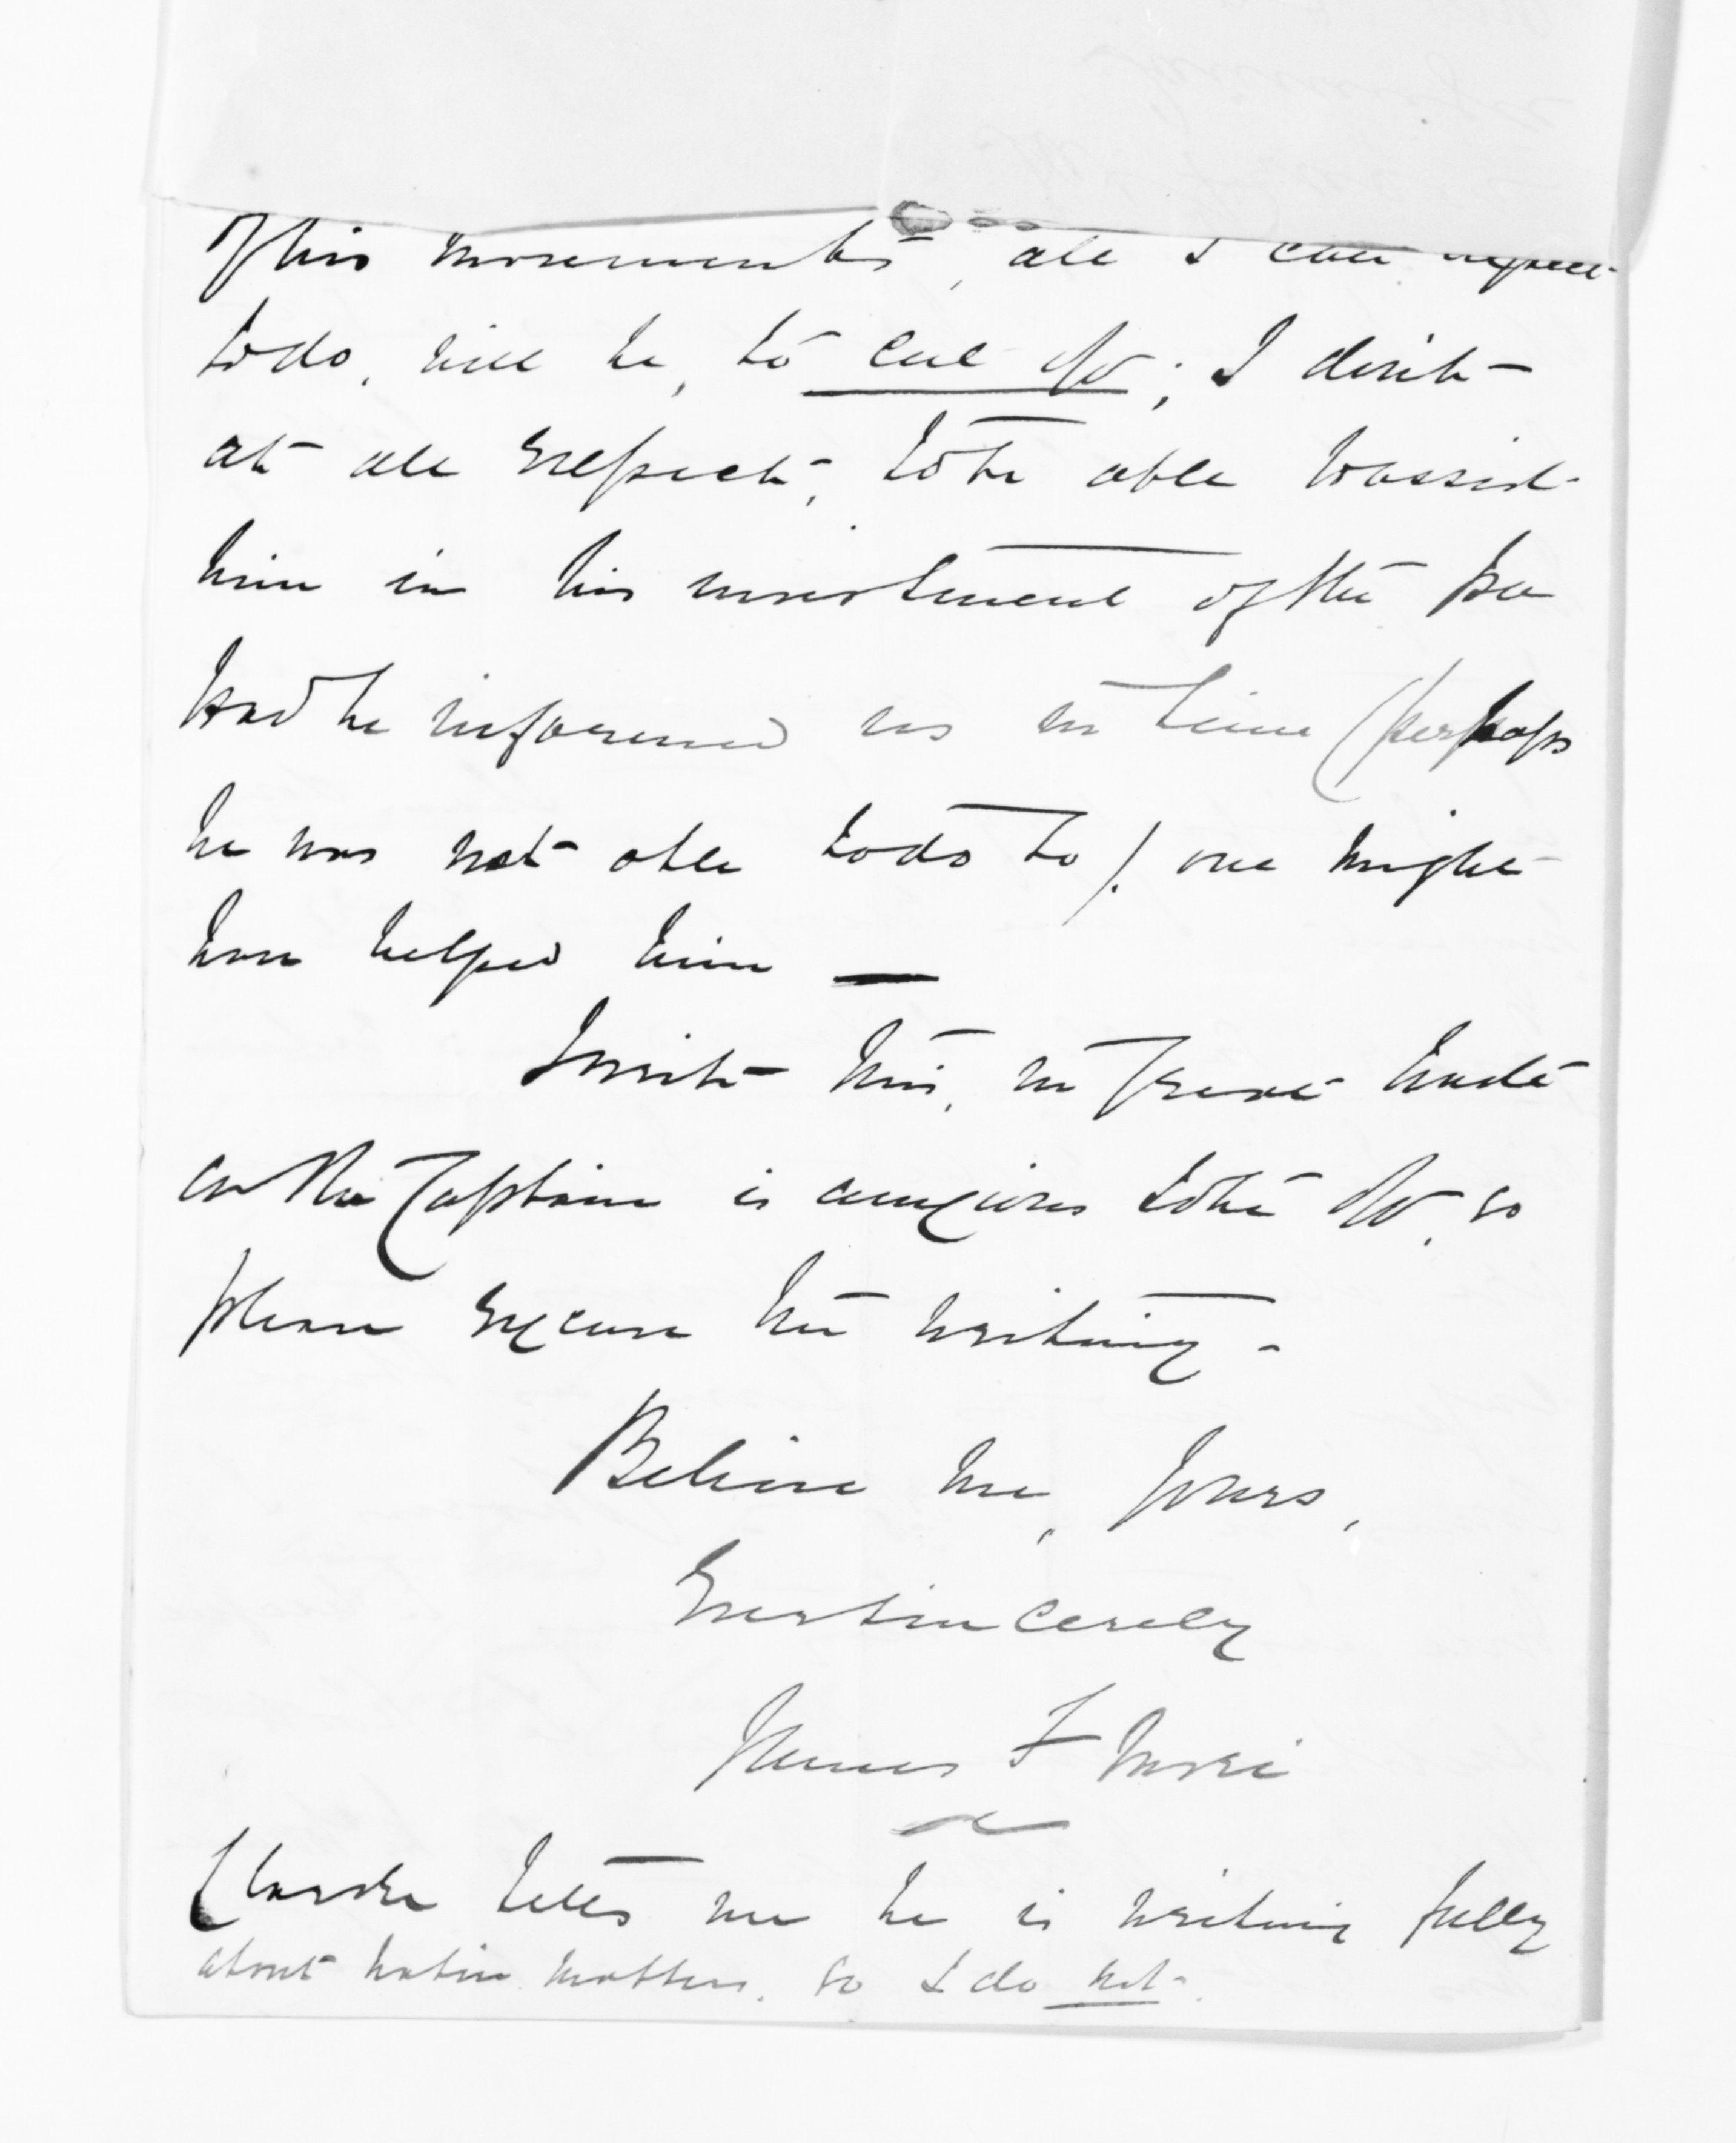 of his movements, all I can expect
to do, will be, to cut off; I don't
at all expect, to be able to assist
him in his investment of the Pa
had he informed us in time (perhaps
he was not able to do so). one might
have helped him —
I write this, in great haste
as the Captain is anxious to be off, so
please excuse the writing -
Believe me, yours,
Ever sincerely
James F
Clarke tells me he is writing fully
about native matters. so I do not.